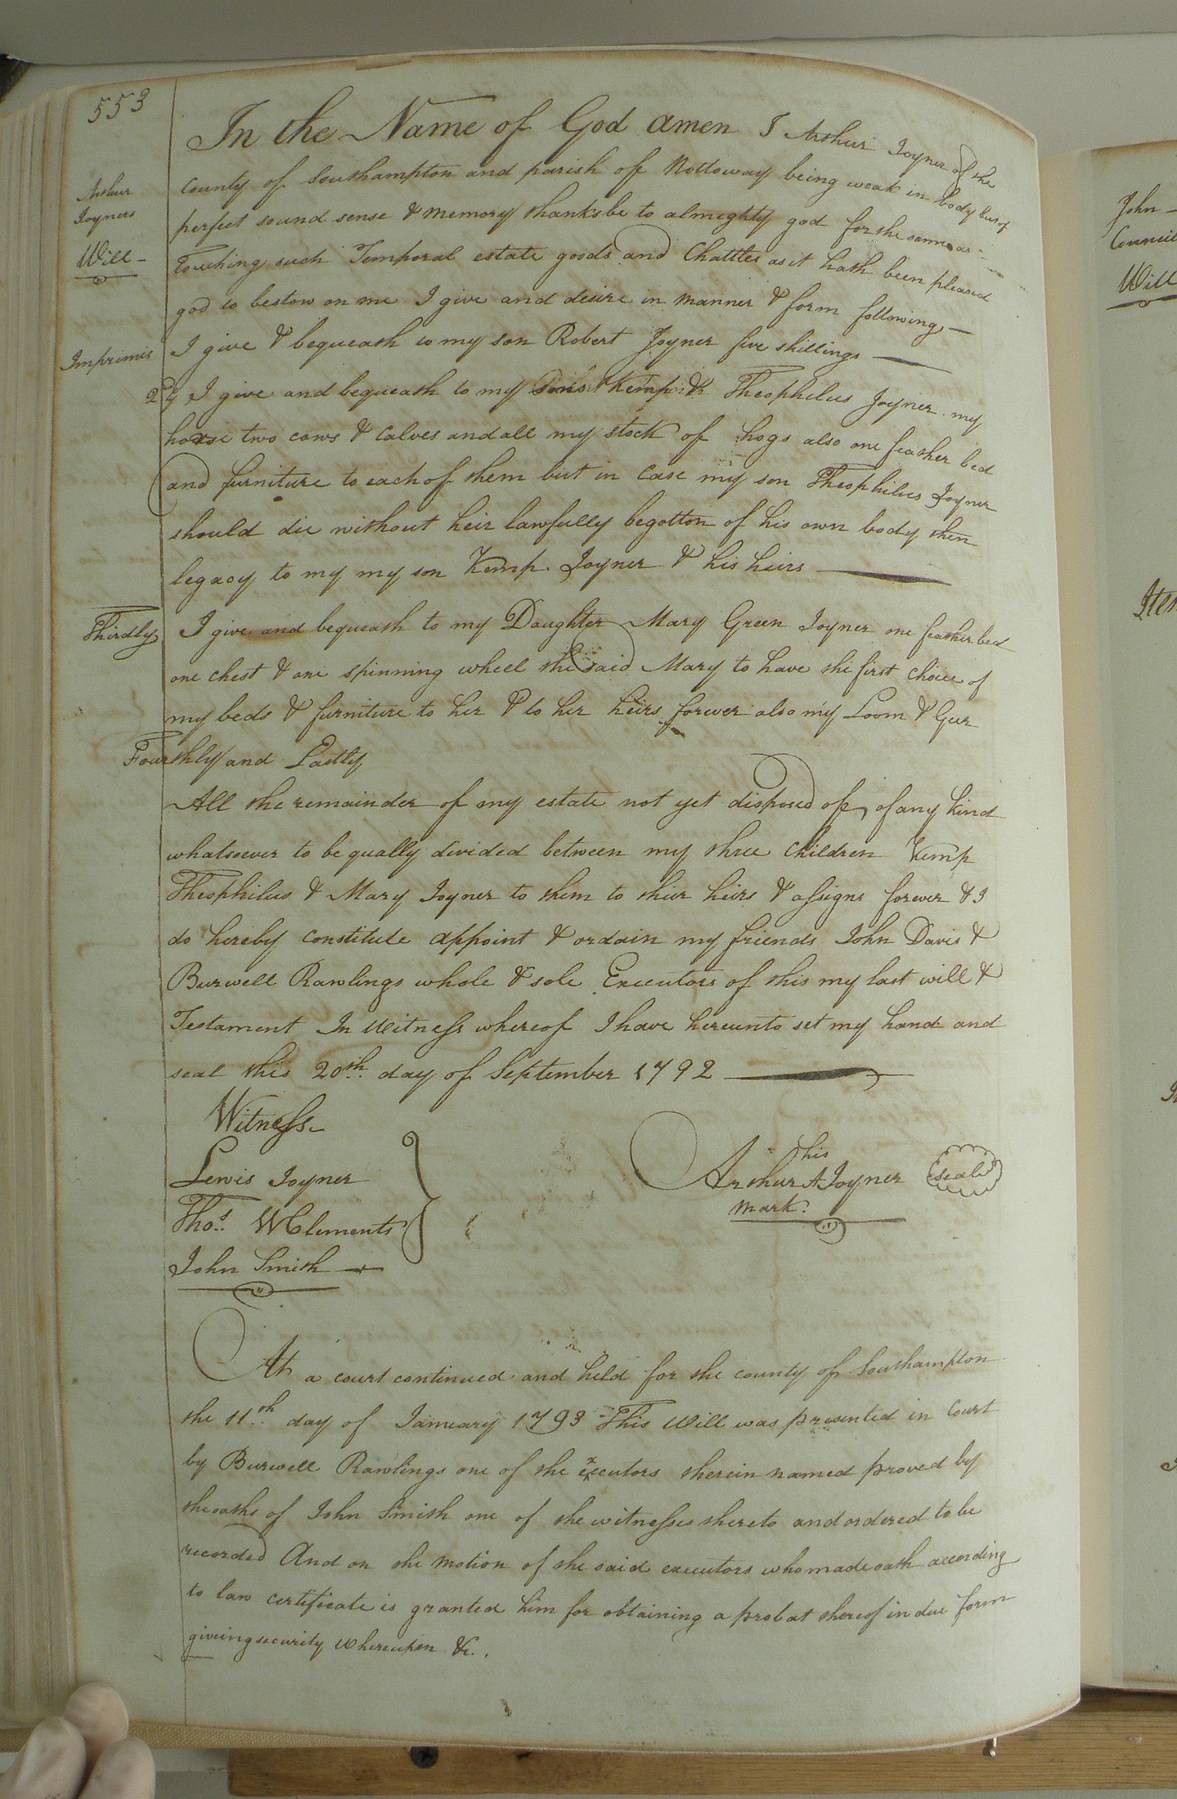 553
In the Name of God amen I Arthur Joyner of the
Arthur
Joyners
Will
county of Southampton and parish of Nottoway being weak in body but of
perfect sound sense & memory thanks be to almighty god for the same as
Touching such Temporal estate goods and Chattles as it hath been pleased
god to bestow on me I give and desire in manner & form following
Imprimis I give & bequeath to my son Robert Joyner five shillings
2ly I give and bequeath to my sons Kemp & Theophilus Joyner my
horse two cows & calves and all my stock of hogs also one feather bed
and furniture to each of them but in case my son Theophilus Joyner
should die without heir lawfully begotton of his own body then
legacy to my my son Kemp Joyner & his heirs
Thirdly I give and bequeath to my Daughter Mary Green Joyner one feather bed
one chest & one spinning wheel the said Mary to have the first choice of
my beds & furniture to her & to her heirs forever also my Loom & Geer
Fourthly and Lastly
All the remainder of my estate not yet disposed of, of any kind
whatsoever to be qually divided between my three children Kemp
Theophilus & Mary Joyner to them to thier heirs & assigns forever & I
do hereby constitute appoint & ordain my friends John Davis &
Burwell Rawlings whole & sole Executors of this my last will &
Testament In Witness whereof I have hereunto set my hand and
seal this 20th day of September 1792
Witness
Lewis Joyner
Thos. W Clements
John Smith
his
Arthur A Joyner seal
mark.
At a court continued and held for the county of Southampton
the 11th day of January 1793 This Will was presented in Court
by Burwell Rawlings one of the executors therein named proved by
the oaths of John Smith one of the witnesses thereto and ordered to be
recorded And on the motion of the said executors who made oath according
to law certificate is granted him for obtaining a probat thereof in due form
giving security Whereupon &c.
John
Council
Will